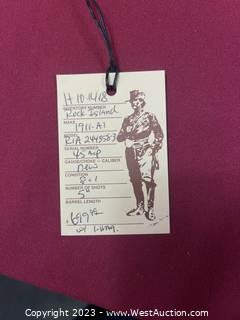 H 10-1418
INVENTORY NUMBER
Rock Island
MAKE
1911-A1
MODEL
RIA 2443583
SERIAL NUMBER
45 acp
GAUGE/CHOKE - CALIBER
new
CONDITION
8+1
NUMBER OF SHOTS
5"
BARREL LENGTH
$699.95
w/ 1-mag.
© 2023 - www.WestAuction.com